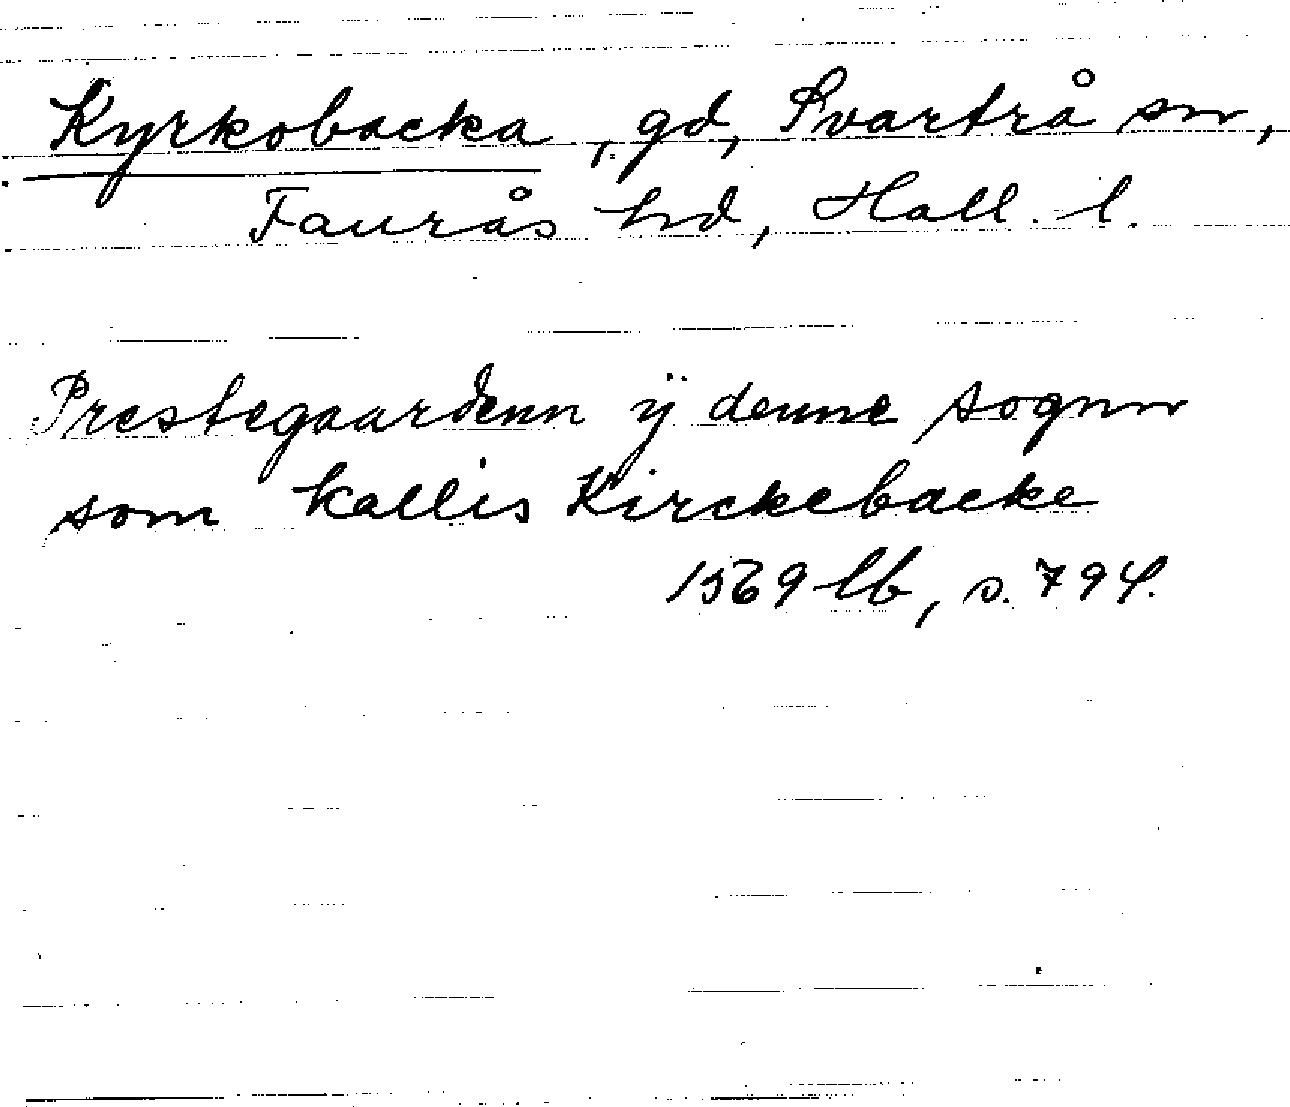 Kyrkobacka, gd, Svartrå sn,
Faurås hd, Hall. l.
Prestegaardenn ÿ denne sognn
som kallis Kirckebacke
1569 lb, s. 794.